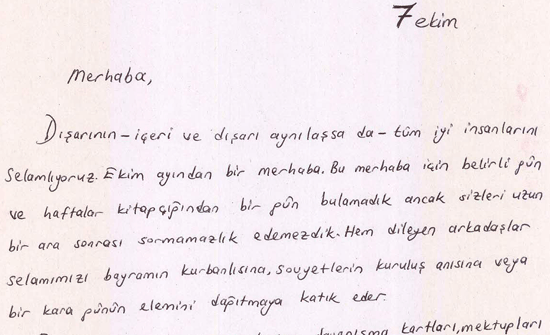 7 ekim
Merhaba,
Dışarının – içeri ve dışarı aynılaşsa da – tüm iyi insanlarını
selamlıyoruz. Ekim ayından bir merhaba. Bu merhaba için belirli gün
ve haftalar kitapçığından bir gün bulamadık ancak sizleri uzun
bir ara sonrası sormamazlık edemezdik. Hem dileyen arkadaşlar
selamımızı bayramın kurbanlısına, Sovyetlerin kuruluş anısına veya
bir kara günün elemini dağıtmaya katık eder.
dayanışma kartları, mektupları